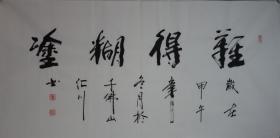 難得糊塗
歲在
甲午
冬月於
千佛山
仁川
书